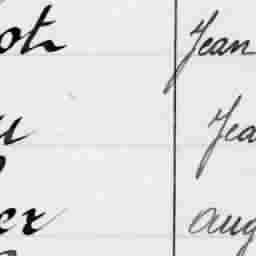 ot Jean
u Jea
er aug